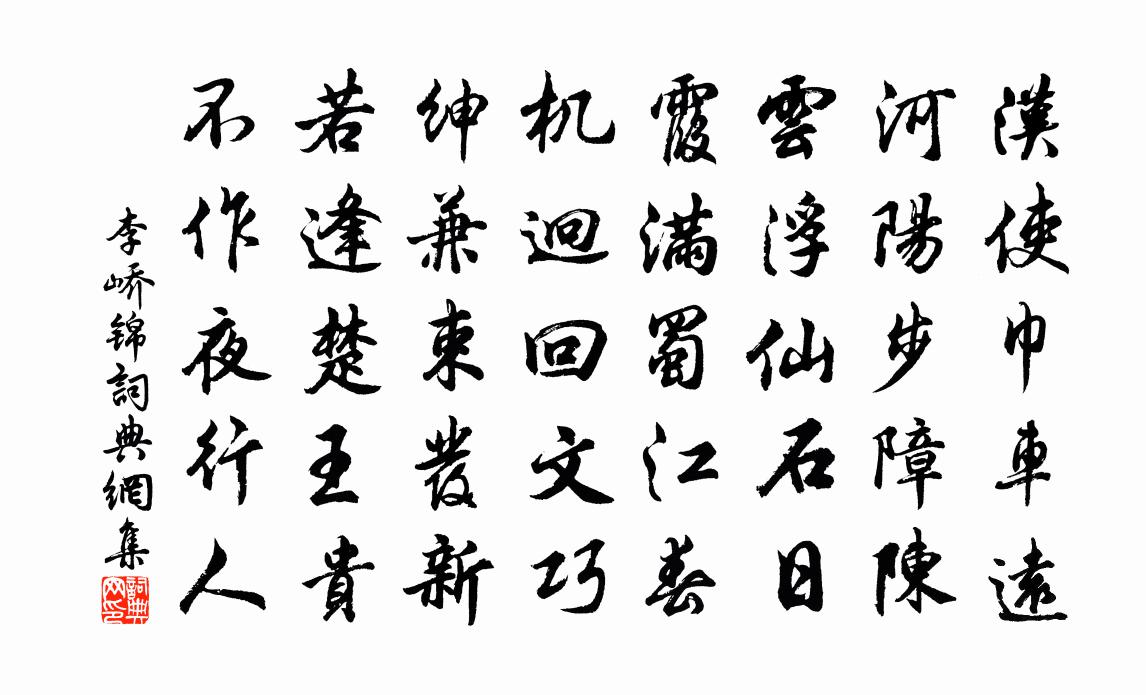 漢使巾車遠
河陽步障陳
雲浮仙石日
霞滿蜀江春
机迴回文巧
紳兼束發新
若逢楚王貴
不作夜行人
李嶠錦詞典網集
詞典網印